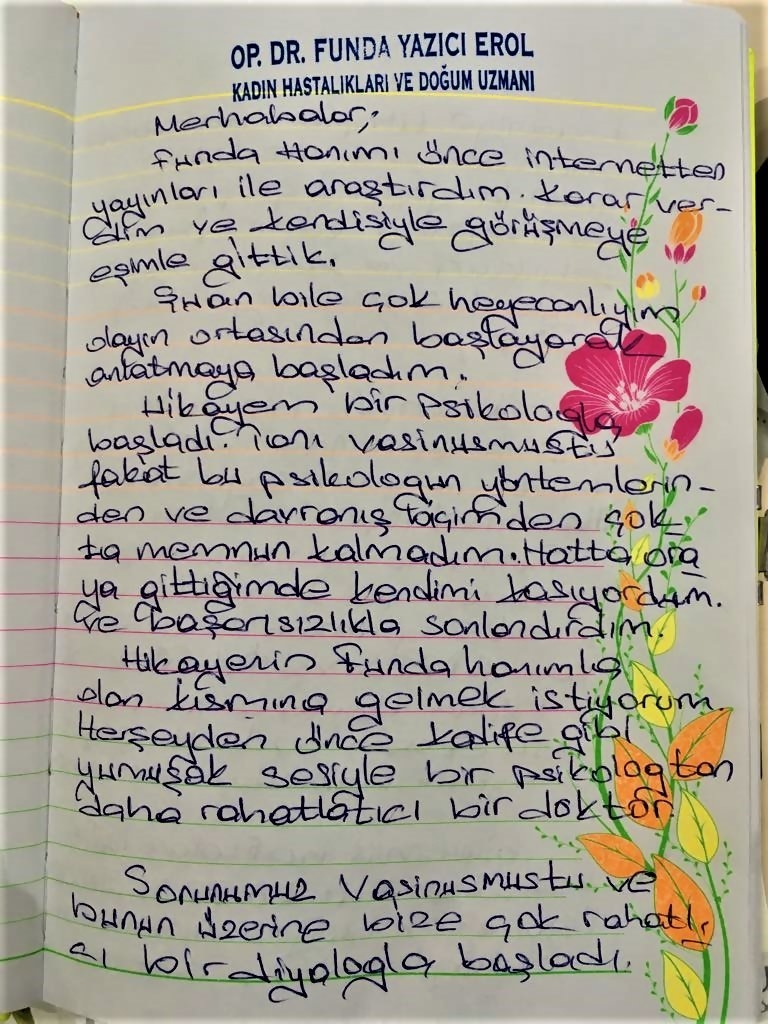 OP. DR. FUNDA YAZICI EROL
KADIN HASTALIKLARI VE DOĞUM UZMANI
Merhabalar;
Funda Hanımı önce internetten
yayınları ile araştırdım. Karar ver-
dim ve kendisiyle görüşmeye
eşimle gittik.
Şuan bile çok heyecanlıyım
olayın ortasından başlayarak
anlatmaya başladım.
Hikayem bir psikologla
başladı. Tanı vasinusmustu
fakat bu psikologun yöntemlerin-
den ve davranış biçiminden çok
ta memnun kalmadım. Hatta ora
ya gittiğimde kendimi kasıyordum.
ve başarısızlıkla sonlandırdım.
Hikayenin Funda hanımla
olan kısmına gelmek istiyorum.
Herşeyden önce kadife gibi
yumuşak sesiyle bir psikologtan
daha rahatlatıcı bir doktor
Sorunumuz Vasinusmustu ve
bunun üzerine bize çok rahatlı
cı bir diyalogla başladı.